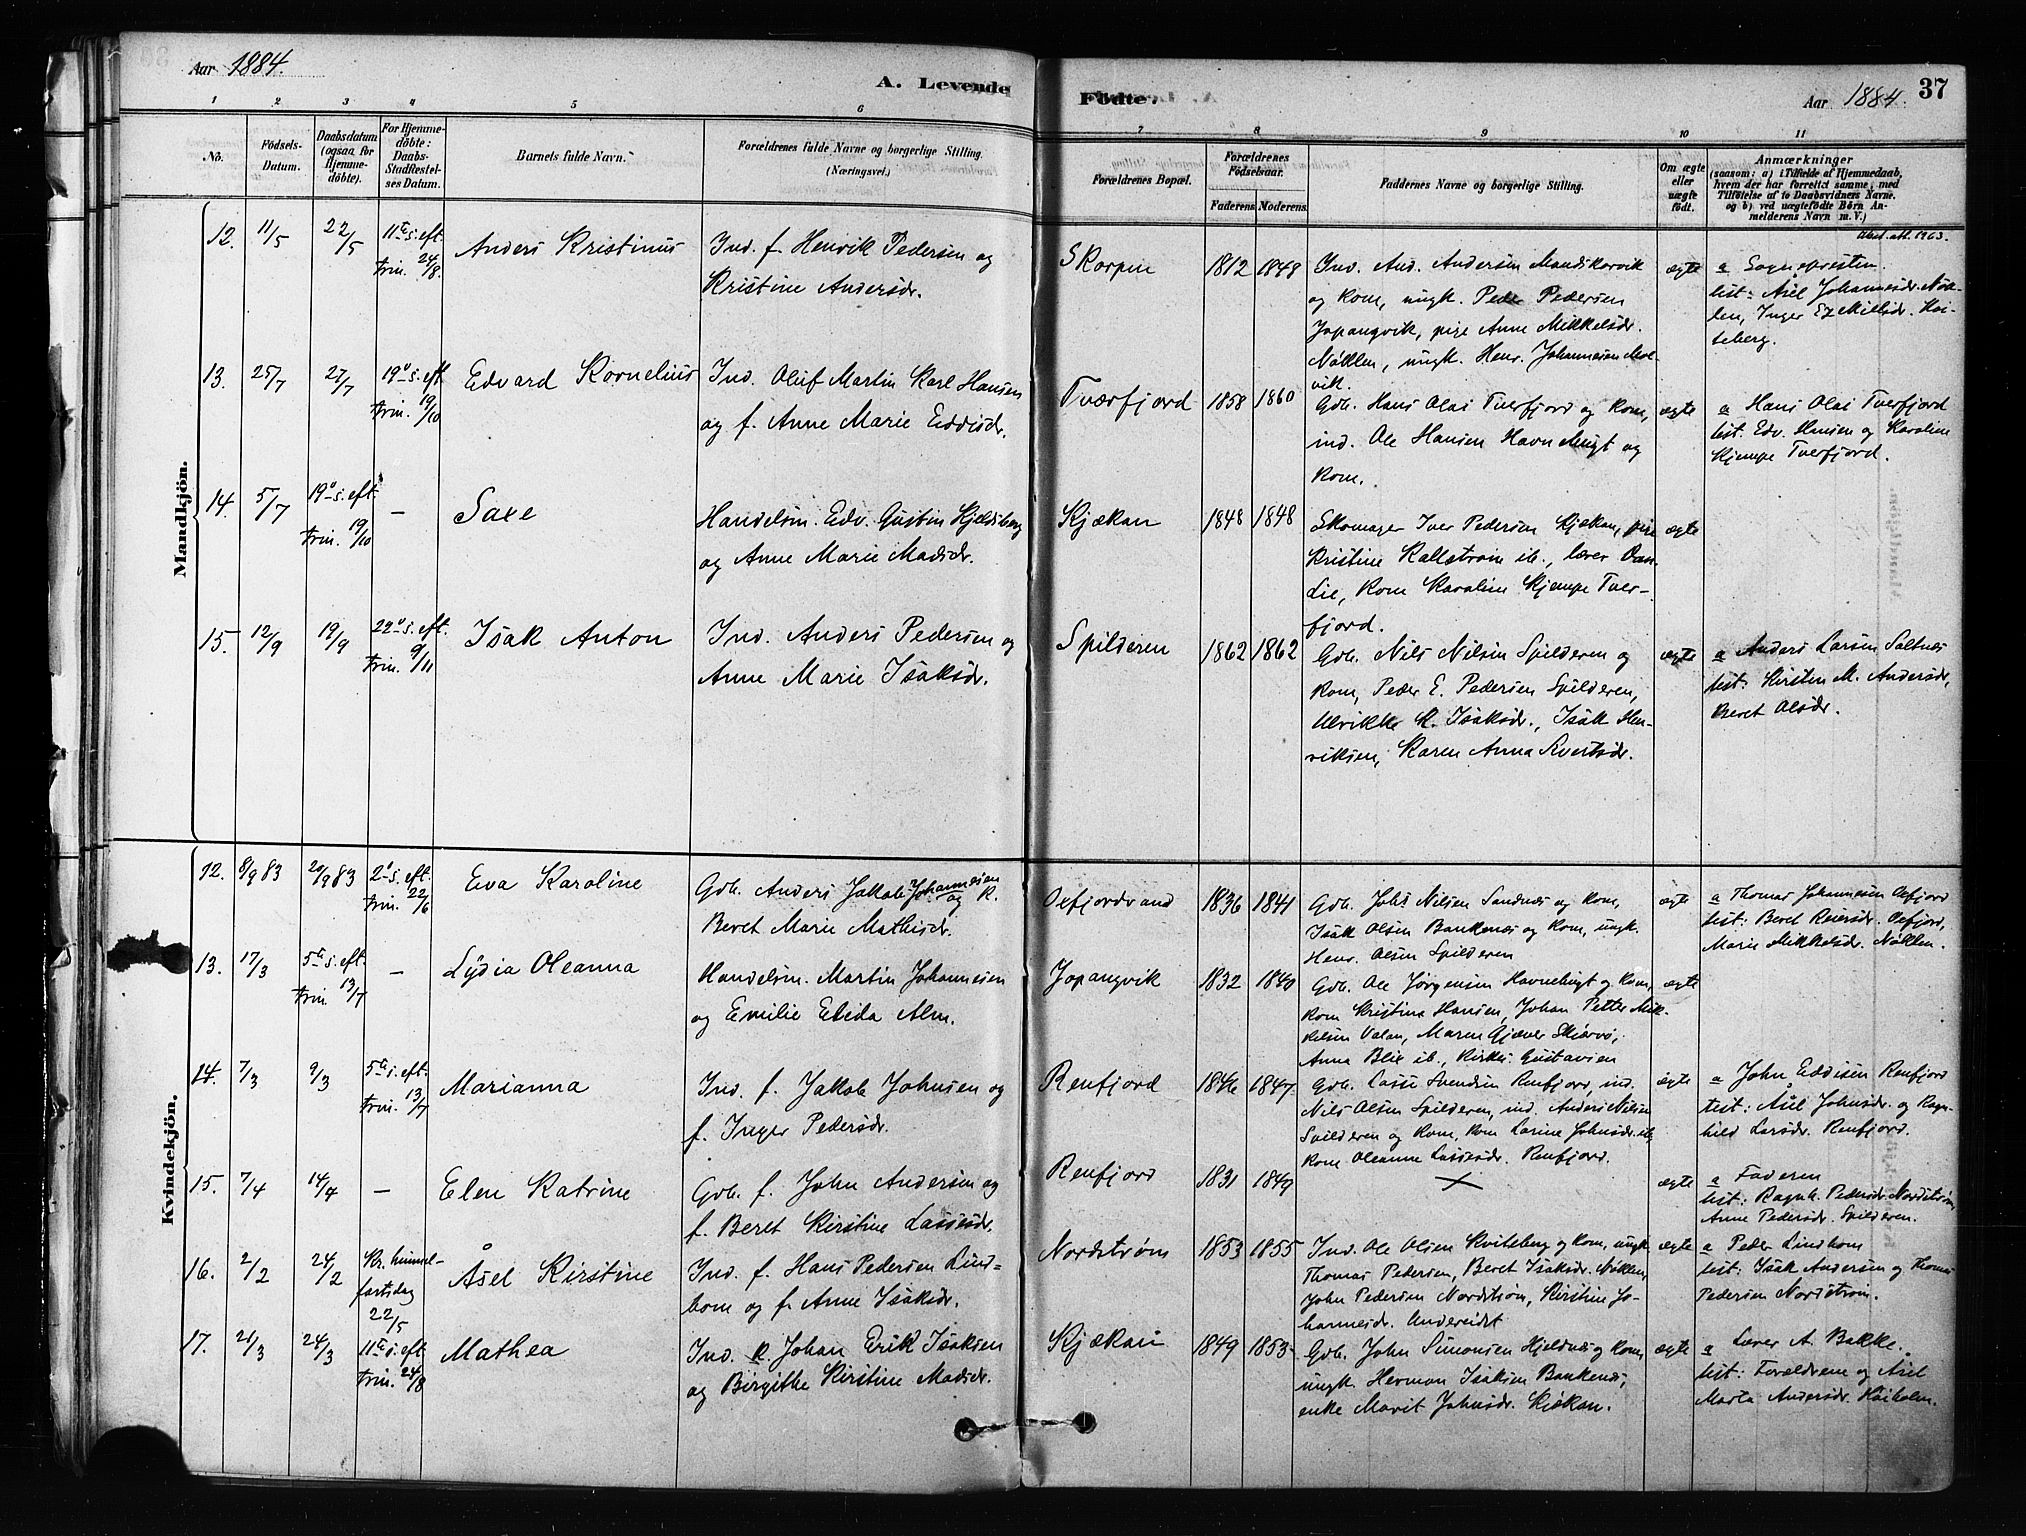 Aar 1884.
A. Levende
Födte.
Aar 1884.
37
1 2 3 4 5 6 7 8 9 10 11
No.
Födsels-
Datum.
Daabsdatum
(ogsaa for
Hjemme-
döbte).
For Hjemme-
döbte:
Daabs-
Stadfæstel-
ses Datum.
Barnets fulde Navn.
Forældrenes fulde Navne og borgerlige Stilling.
(Næringsvei.)
Forældrenes Bopæl.
Forældrenes
Födselsaar.
Faderens Moderens
Faddernes Navne og borgerlige Stilling.
Om ægte
eller
uægte
födt.
Anmærkninger
(saasom: a) i Tilfælde af Hjemmedaab,
hvem der har forrettet samme, med
Tilföielse af to Daabsvidners Navne.
og b) ved uægtefödte Börn An-
melderens Navn m. V.)
Mandkjön.
12.
11/5
22/5
11te s. eft.
trin. 24/8.
Anders Kristinus
Ind. f. Henrik Pedersen og
Kristine Andersdr.
Skorpen
1812
1848
Ind. And. Andersen Mandskarvik
og kom, ungk. Peder Pedersen
Jopangvik, pige Anne Mikkelsdr.
Nøklen, ungk. Henr. Johannesen
vik.
ægte
att. 1963.
a Sognepresten.
test: Asel Johannesdr. Nøk-
len, Inger Ezekielsdr.
teberg.
13.
25/7
27/7
19de s. eft
trin. 19/10
Edvard Kornelius
Ind. Oluf Martin Karl Hansen
og f. Anne Marie Eddisdr.
Tværfjord
1858
1860
Gdb. Hans Olai Tverfjord og kom,
ind. Ole Hansen Havnebugt og
kom.
ægte
a Hans Olai Tverfjord
test. Edv. Hansen og Karoline
Kjempe Tverfjord.
14.
5/7
19de s. eft.
trin. 19/10
—
Saxe
Handelsm. Edv. Gustin Kjeldsberg
og Anne Marie Madsdr.
Kjækan
1848
1848
Skomager Iver Pedersen Kjækan, pige
Kristine Kallstrøm ib., lærer Dan.
Lie, kom Karoline Kjempe Tver-
fjord.
ægte
15.
12/9
19/9
22de s. eft.
trin. 9/11
Isak Anton
Ind. Anders Pedersen og
Anne Marie Isaksdr.
Spilderen
1862
1862
Gdb. Nils Nilsen Spilderen og
kom, Peder E. Pedersen Spilderen,
Ulrikke K. Isaksdr., Isak Hen-
riksen, Karen Anna Sivertsdr.
ægte
a Anders Larsen Saltnes
test: Kirsten M. Andersdr,
Beret Olsdr.
Kvindekjön.
12.
8/9 83
20/9 83
2de s. eft.
trin. 22/6
Eva Karoline
Gdb. Anders Jakob Johannesen og K.
Beret Marie Mathisdr.
Oxfjordvand
1836
1841
Gdb. Johs Nilsen Sandnes og kom,
Isak Olsen Bankenes og kom, ungk.
Henr. Olsen Spilderen
ægte
a Thomas Johannesen Oxfjord
test: Beret Reiersdr. Oxfjord,
Marie Mikkelsdr. Nøklen.
13.
17/3
5te s. eft.
trin. 13/7
—
Lydia Oleanna
Handelsm. Martin Johannesen
og Emilie Elida Alm.
Jopangvik
1832
1840
Gdb. Ole Jørgensen Havnebugt og kom,
kom Kristina Hansen, Johan Petter Mik-
kelsen Valan, Maren Gjæver Skjervø,
Anna Blix ib., Gustavsen
ægte
14.
7/3
9/3
5te s. eft.
trin. 13/7
Marianna
Ind. f. Jakob Johnsen og
f. Inger Pedersdr.
Renfjord
1846
1847.
Gdb. Lasse Svendsen Renfjord, ind.
Nils Olsen Spilderen, ind. Anders Nilsen
Spilderen og kom, kom Larine Johnsdr. ib
kom Oleanne Lassesdr. Renfjord.
ægte
a John Eddisen Renfjord
test: Asel Johnsdr. og Ragn-
hild Larsdr. Renfjord.
15.
7/4
14/4
—
Elen Katrine
Gdb. f. John Andersen og
f. Beret Kirstine Lassesdr.
Renfjord
1831
1849
×
ægte
a Faderen
test: Ragnh. Pedersdr. Nordstrøm,
Anne Pedersdr. Spilderen.
16.
2/2
24/2
Kr. himmel-
fartsdag
22/5
Åsel Kirstine
Ind. f. Hans Pedersen Lind-
bom og f. Anne Isaksdr.
Nordstrøm
1853
1855
Ind. Ole Olsen Kviteberg og kom, ungk.
Thomas Pedersen, Beret Isaksdr. Nøklen,
John Pedersen Nordstrøm, Kirstine Jo-
hannesdr. Undereidet
ægte
a Peder Lindbom
test: Isak Andersen og Thomas
Pedersen Nordstrøm.
17.
21/3
24/3
11te s. eft
trin. 24/8
Mathea
Ind. K. Johan Erik Isaksen
og Birgithe Kirstine Madsdr.
Kjækan
1849
1853
Gdb. John Simonsen Hjeldnes og kom,
ungk. Herman Isaksen Bankenes,
enke Marit Johnsdr. Kjækan.
ægte
a Lærer A. Bakke.
test: Forældrene og Asel
Marta Andersdr.